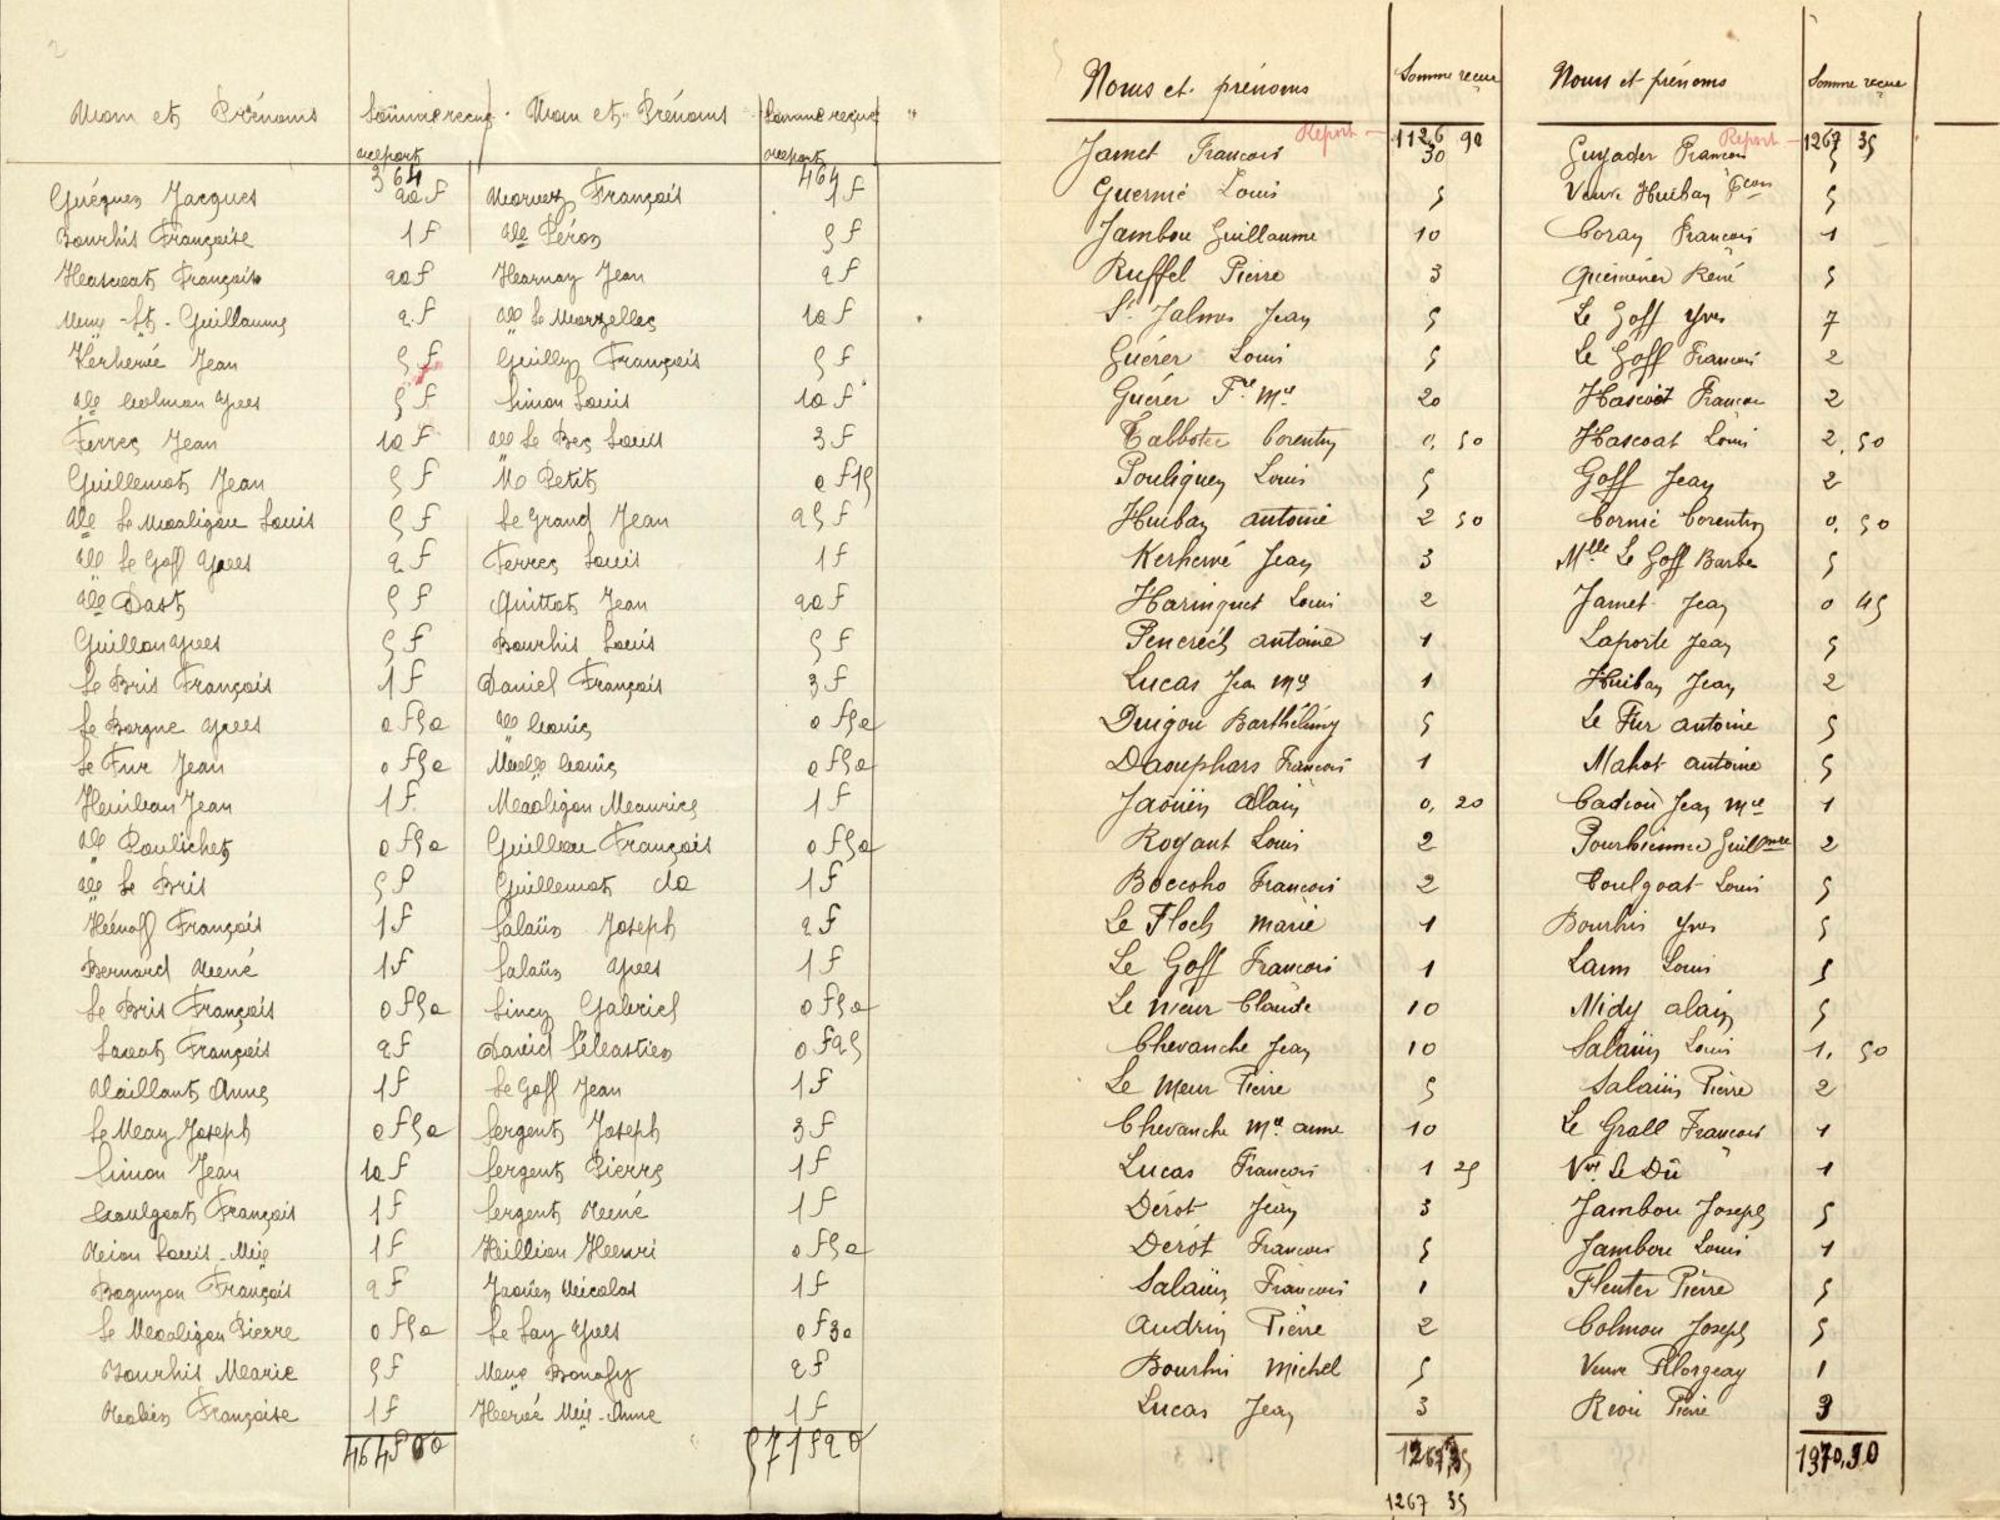 Nom et Prénoms Somme reçue Nom et Prénoms Somme reçue "
report report
364 464
Guéguen Jacques 20 f Morvez François 1 f
Bourhis Françoise 1 f Vve Péron 5 f
Hascoat François 20 f Hernay Jean 2 f
2 f Vve Le Marzellec 10 f
Kerhervé Jean 5 f Guilly François 5 f
Vve Colman Yves 5 f Simon Louis 10 f
Ferrec Jean 10 f Vve Le Bec Louis 3 f
Guillemot Jean 5 f Mr Petit 0 f 15
Vve Le Moaligou Louis 5 f Le Grand Jean 25 f
Vve Le Goff Yves 2 f Ferrec Louis 1 f
Vve Dast 5 f Quittot Jean 20 f
Guillou Yves 5 f Bourhis Louis 5 f
Le Bris François 1 f Daniel François 3 f
Le Borgne Yves 0 f 50 Vve 0 f 50
Le Fur Jean 0 f 50 0 f 50
Huiban Jean 1 f Moaligou Maurice 1 f
Vve Poulichet 0 f 50 Guillou François 0 f 50
Vve Le Bris 5 f Guillemot do 1 f
Hénaff François 1 f Salaün Joseph 2 f
Bernard René 1 f Salaün Yves 1 f
Le Bris François 0 f 50 Lincy Gabriel 0 f 50
François 2 f David Sébastien 0 f 25
Vaillant Anne 1 f Le Goff Jean 1 f
Le May Joseph 0 f 50 Sergent Joseph 3 f
Simon Jean 10 f Sergent Pierre 1 f
Coulgoat François 1 f Sergent René 1 f
Riou Louis-Mie 1 f Hillion Henri 0 f 50
Boguyon François 2 f Jaouen Nicolas 1 f
Le Moaligou Pierre 0 f 50 Le Lay Yves 0 f 30
Bourhis Marie 5 f Bonafy 2 f
Robin Françoise 1 f Hervé Mie-Anne 1 f
464 f 00 571 f 20
Noms et prénoms Somme reçue Noms et prénoms Somme reçue
Report 1126 90 Report 1267 35
Jamet Francois 30 Guyader Francois 5
Guermé Louis 5 Veuve Huiban Fçois 5
Jambou Guillaume 10 Coray Francois 1
Ruffel Pierre 3 Quéméner René 5
St Jalmes Jean 5 Le Goff Yves 7
Guérer Louis 5 Le Goff Francois 2
Guérer Fse Mie 20 Hascoët Francois 2
Talbotec Corentin 0, 50 Hascoat Louis 2, 50
Pouliquen Louis 5 Goff Jean 2
Huiban antoine 2 50 Cornic Corentin 0, 50
Kerhervé Jean 3 Mlle Le Goff Barbe 5
Harinquet Louis 2 Jamet Jean 0 45
Pencréch antoine 1 Laporte Jean 5
Lucas Jean Mie 1 Huiban Jean 2
Duigou Barthélémy 5 Le Fur antoine 5
Daouphars Francois 1 Mahot antoine 5
Jaouën alain 0, 20 Cadiou Jean Mie 1
Rogant Louis 2 2
Boccoho Francois 2 Coulgoat Louis 5
Le Floch marie 1 Bourhis Yves 5
Le Goff Francois 1 Lann Louis 5
Le meur Claude 10 Midy alain 5
Chevanche Jean 10 Salaün Louis 1, 50
Le meur Pierre 5 Salaün Pierre 2
Chevanche Mie anne 10 Le Grall Francois 1
Lucas Francois 1 25 Vve Le Dû 1
Dérot Jean 3 Jambou Joseph 5
Dérot Francois 5 Jambou Louis 1
Salaün Francois 1 Fleuter Pierre 5
Audrin Pierre 2 Colmou Joseph 5
Bourhis Michel 5 Veuve Florgeay 1
Lucas Jean 3 Riou Pierre 3
1267,35 1370,30
1267 35